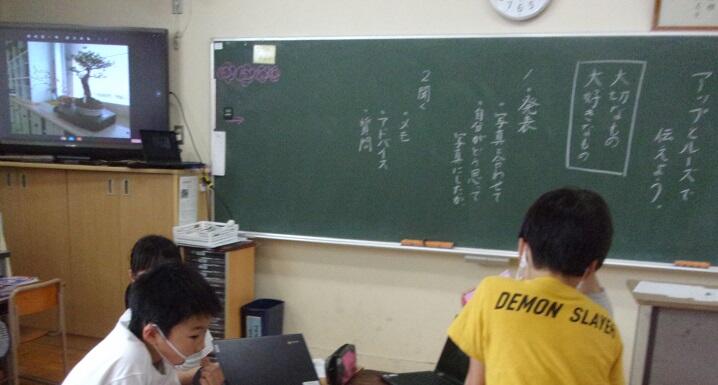 アップとルーズで
伝えよう。
大切なもの
大好きなもの
1、発表
・写真と合わせて
・自分がどう思って
写真にしたか
2 聞く
・メモ
・アドバイス
・質問
DEMON SLAYER